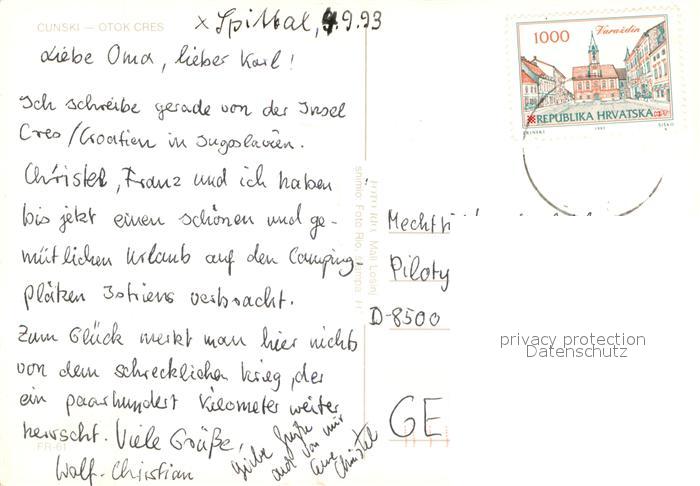 CUNSKI — OTOK CRES
x Spittal, 4.9.93
Liebe Oma, lieber Karl!
Ich schreibe gerade von der Insel
Cres/Croatien in Jugoslavien.
Christel, Franz und ich haben
bis jetzt einen schönen und ge-
mütlichen Urlaub auf den Camping-
plätzen Istriens verbracht.
Zum Glück merkt man hier nichts
von dem schrecklichen Krieg, der
ein paarhundert Kilometer weiter
herrscht. Viele Grüße,
Wolf-Christian
FR-61
liebe Grüße
auch von mir
eure
Christel
Mali Lošinj
snimio: Foto Rio, štampa
1000 Varaždin
REPUBLIKA HRVATSKA
1993
Mechthi
Piloty
D-8500
GE
privacy protection
Datenschutz